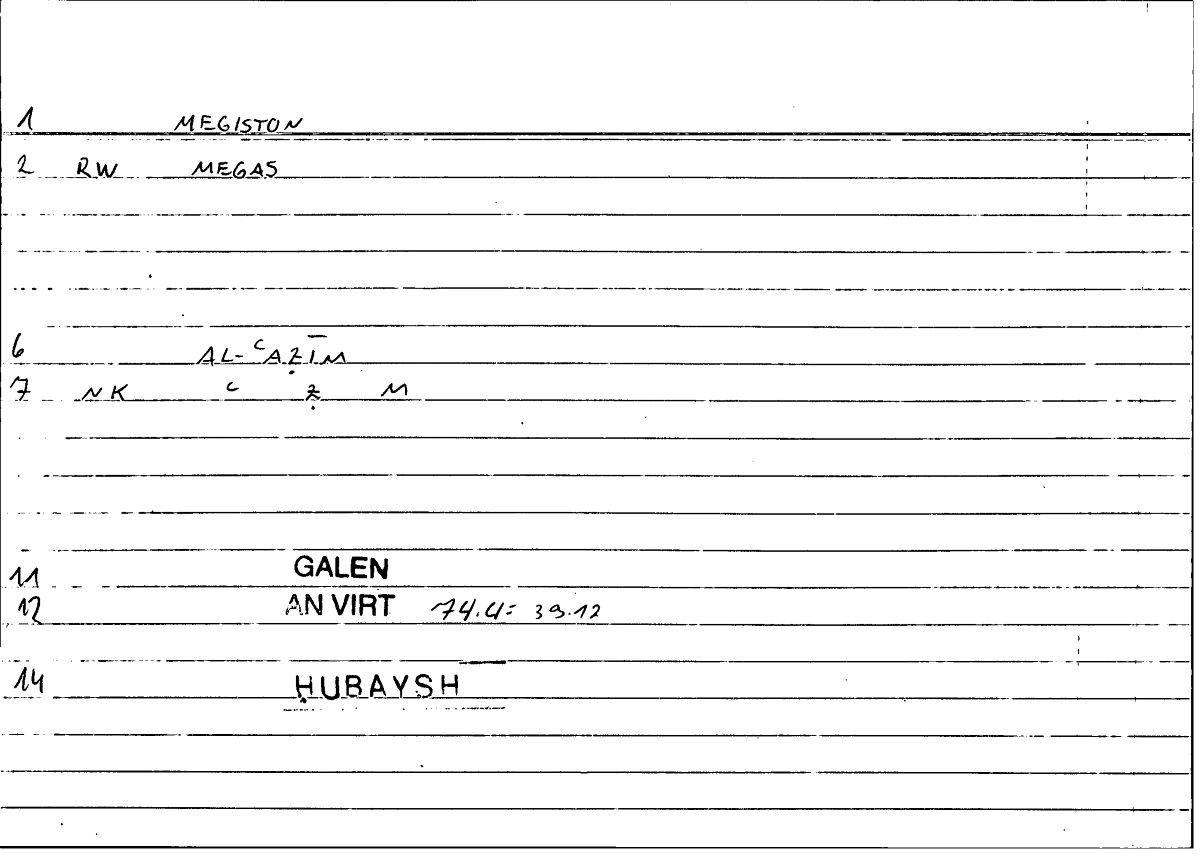 1 MEGISTON
2 RW MEGAS
6 AL-ʿAẒĪM
7 NK ʿ Ẓ M
11 GALEN
12 AN VIRT 74.4= 39.12
14 ḤUBAYSH